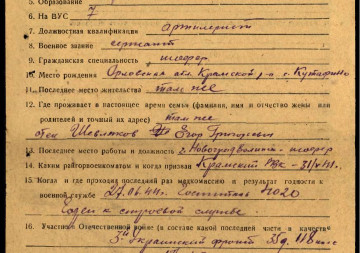 5. Образование
6. На ВУС 7
7. Должностная квалификация артиллерист
8. Военное звание сержант
9. Гражданская специальность шофер
10. Место рождения Орловская обл. Крамской р-н с.
11. Последнее место жительства там же
12. Где проживает в настоящее время семья (фамилия, имя и отчество жены или
родителей и точный их адрес) там же
отец Егор Григорьевич
13. Последнее место работы и должность шофер
14. Каким райгорвоенкоматом и когда призван Крамским РВК
15. Когда и где проходил последний раз медкомиссию и результат годности к
военной службе 27.06.44г. Госпиталь 1020
Годен к строевой службе.
16. Участник Отечественной войны (в составе какой последней части и в качестве
3й Украинский фронт 35д. 118